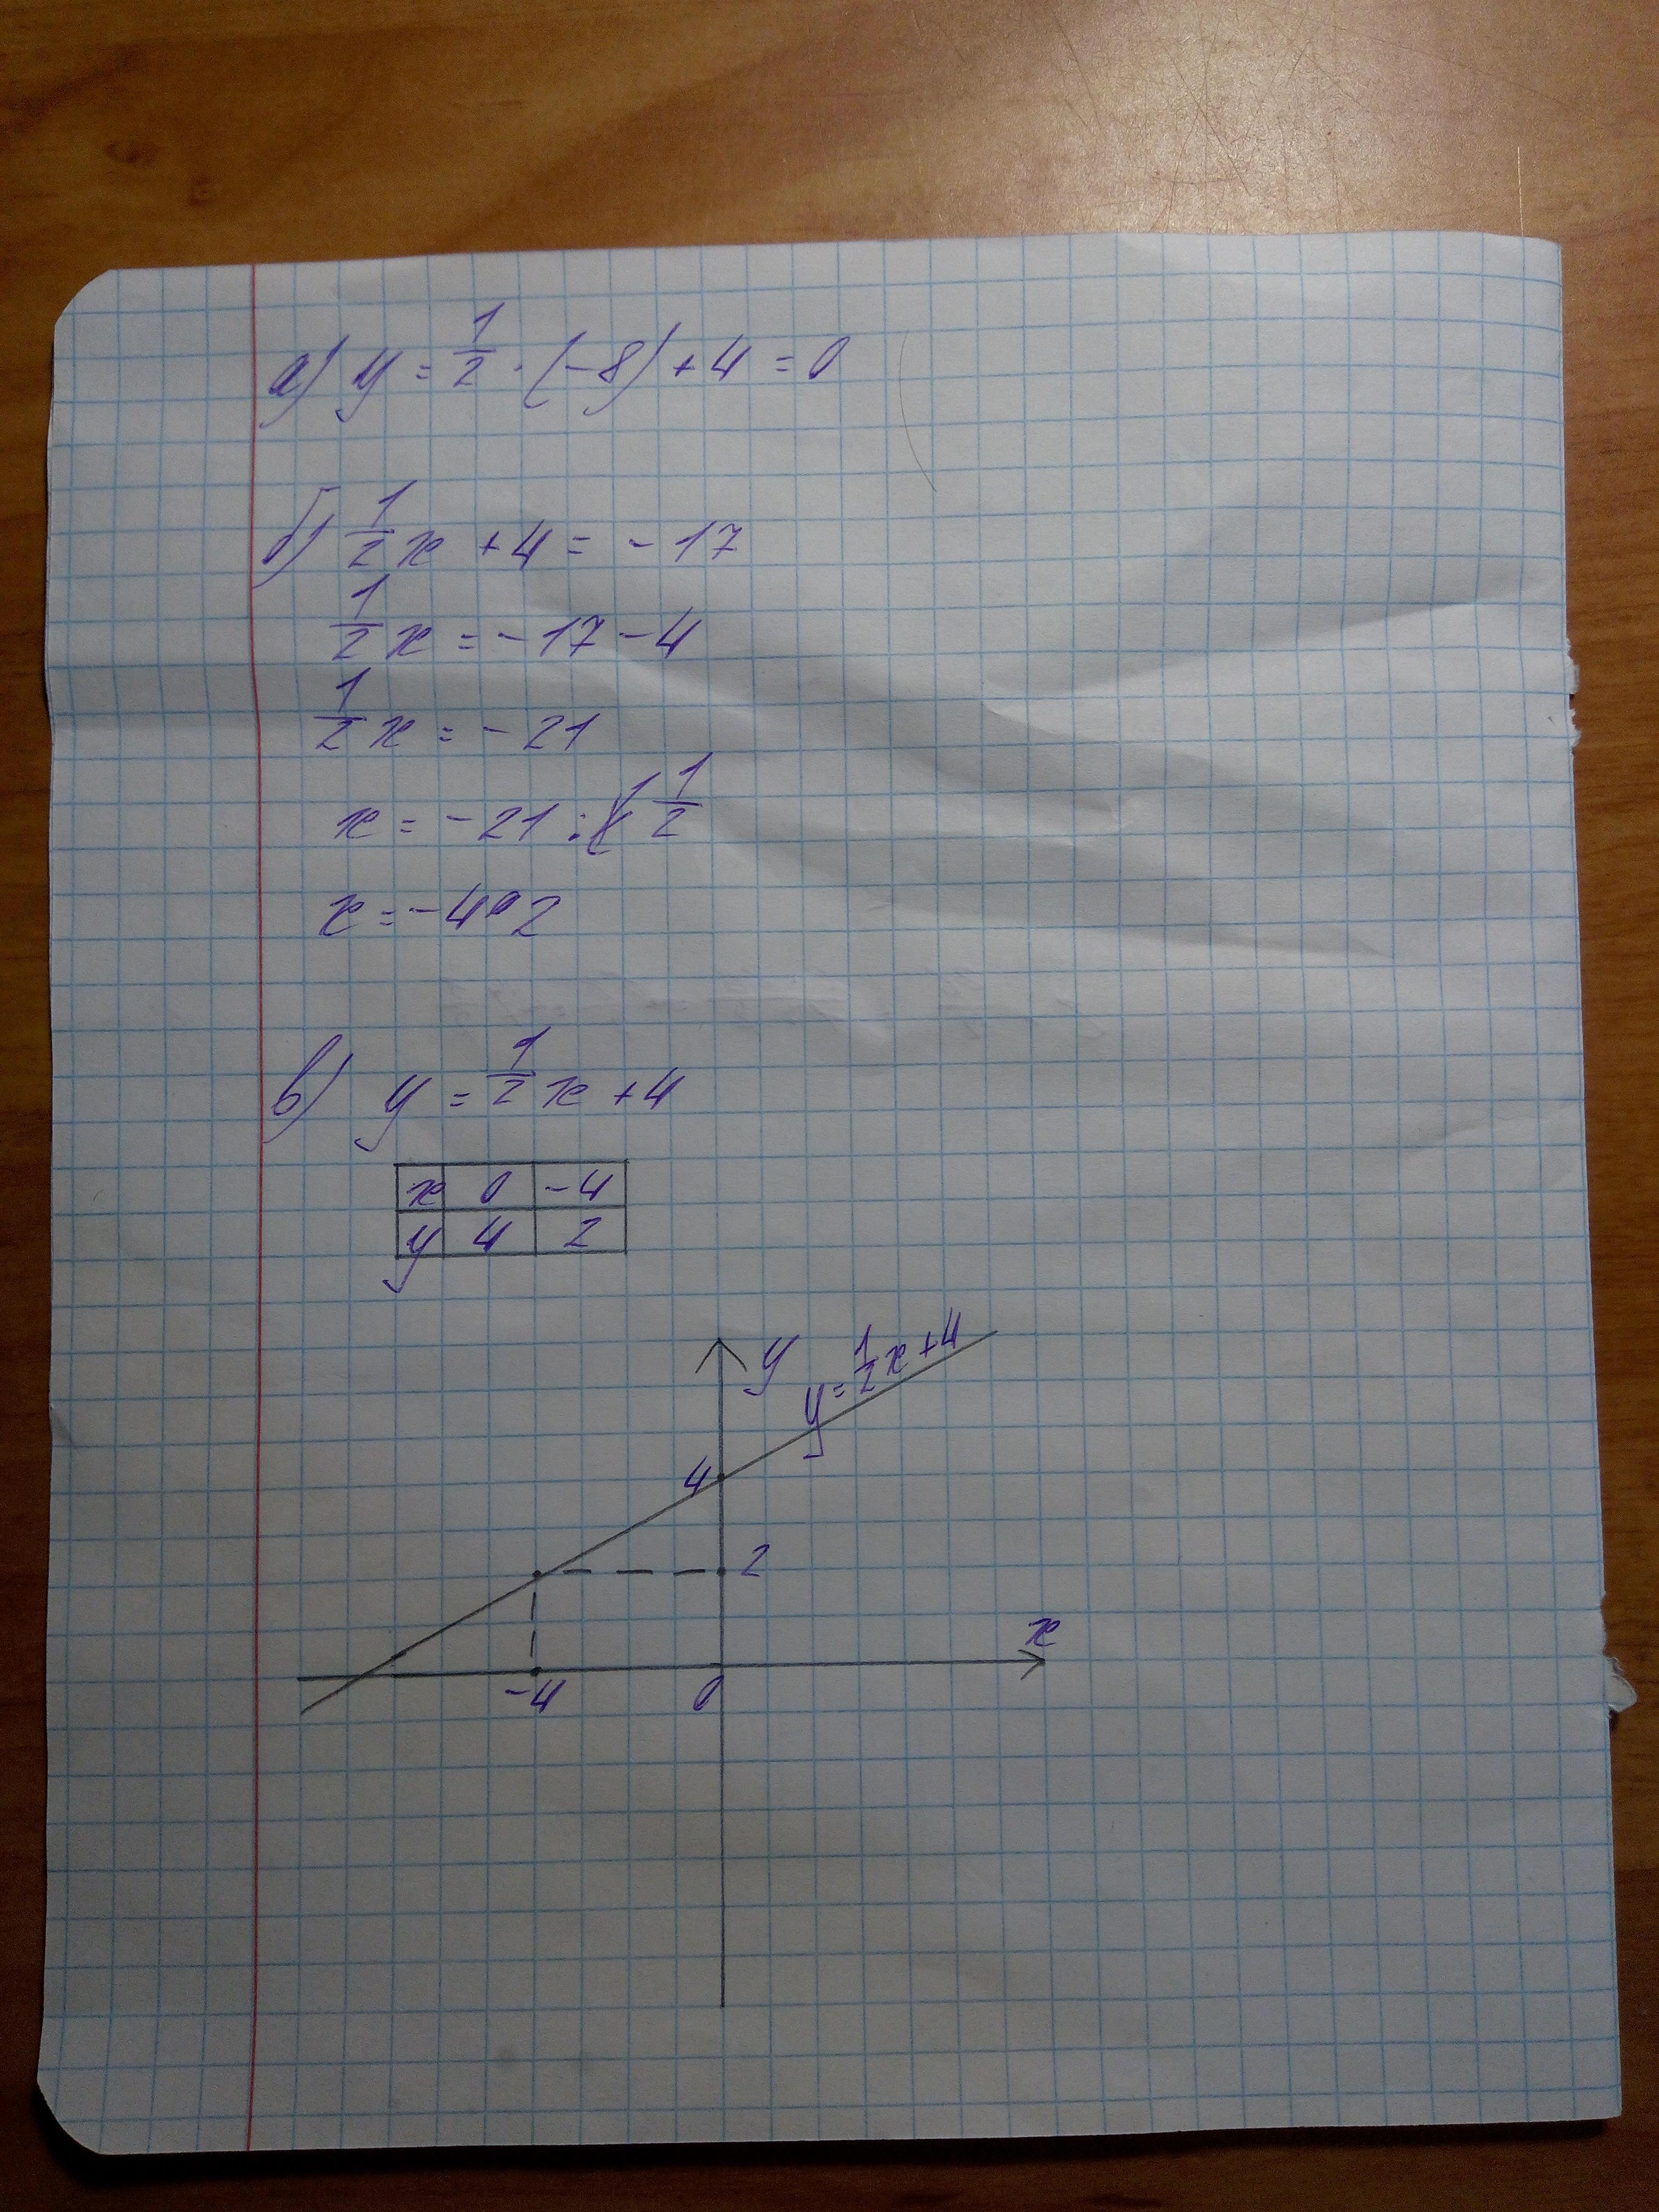 а) y = 1/2 · (-8) + 4 = 0
б) 1/2 x + 4 = -17
1/2 x = -17 - 4
1/2 x = -21
x = -21 : 1/2
x = -42
в) y = 1/2 x + 4
x 0 -4
y 4 2
y
y = 1/2 x + 4
4
2
x
-4 0